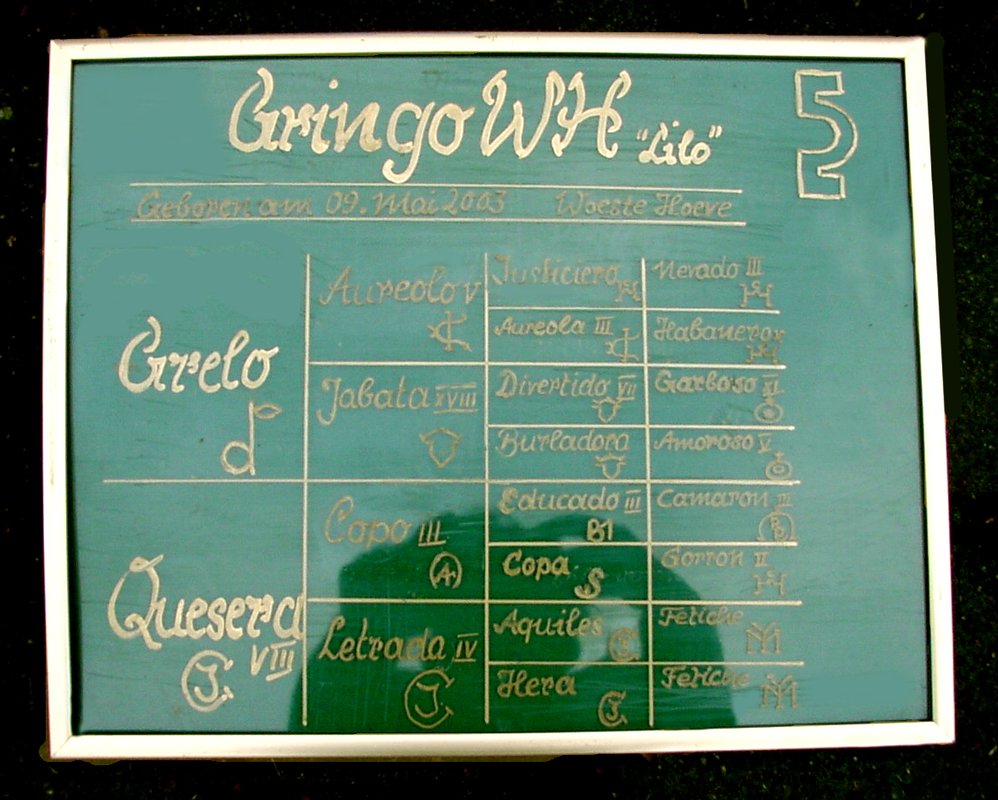 Gringo WH "Lilo"
Geboren am 09. Mai 2003 Woeste Hoeve
Grelo
Quesera VIII
Aureolo V
Jabata XVIII
Copo III
Letrada IV
Justiciero
Aureola III
Divertido VII
Burladora
Educado III
B1
Copa
S
Aquiles
Hera
Nevado III
Habanero
Garboso XI
Amoroso V
Camaron III
Gorron II
Fetiche
Fetiche